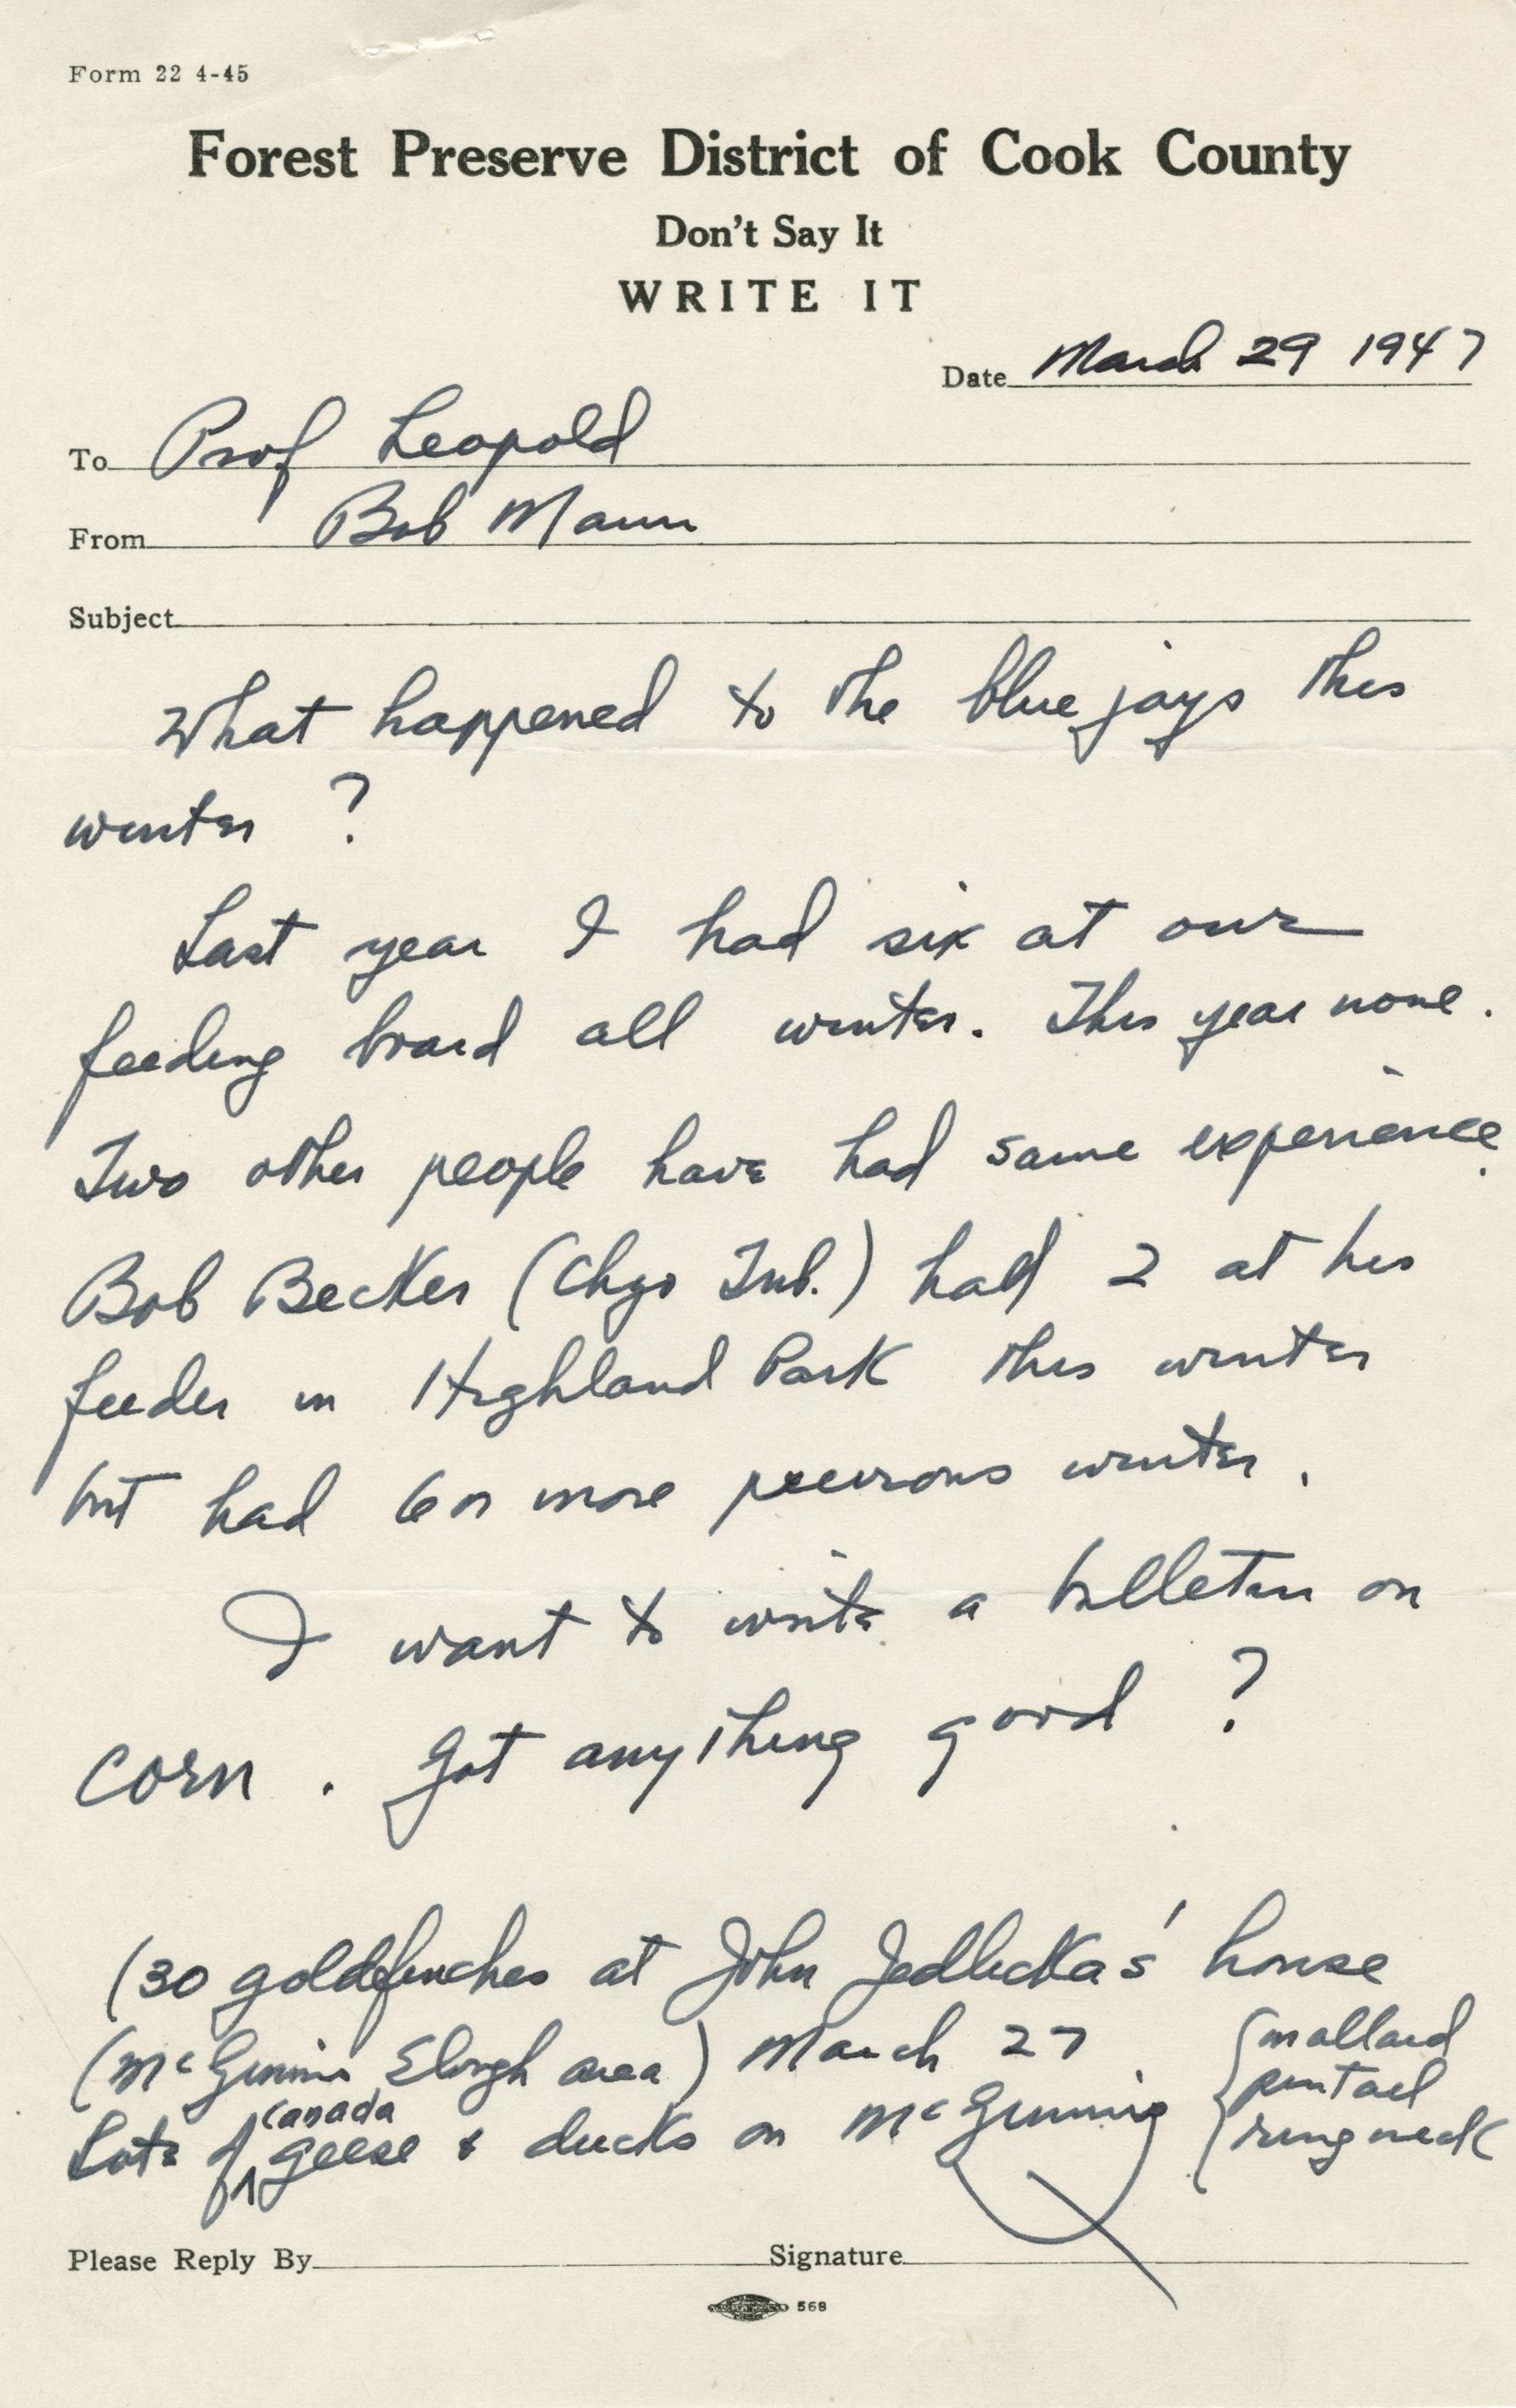 Form 22 4-45
Forest Preserve District of Cook County
Don't Say It
WRITE IT
Date March 29 1947
To Prof Leopold
From Bob Mann
Subject
What happened to the blue jays this
winter ?
Last year I had six at our
feeding board all winter. This year none.
Two other people have had same experience.
Bob Becker (Chgo Trib.) had 2 at his
feeder in Highland Park this winter
but had 6 or more previous winter.
I want to write a bulletin on
corn. Got anything good ?
(30 goldfinches at John Jedlicka's house
(McGinnis Slough area) March 27.
Lots of Canada geese & ducks on McGinnis { mallard
pintail
ringneck
Please Reply By Signature
568